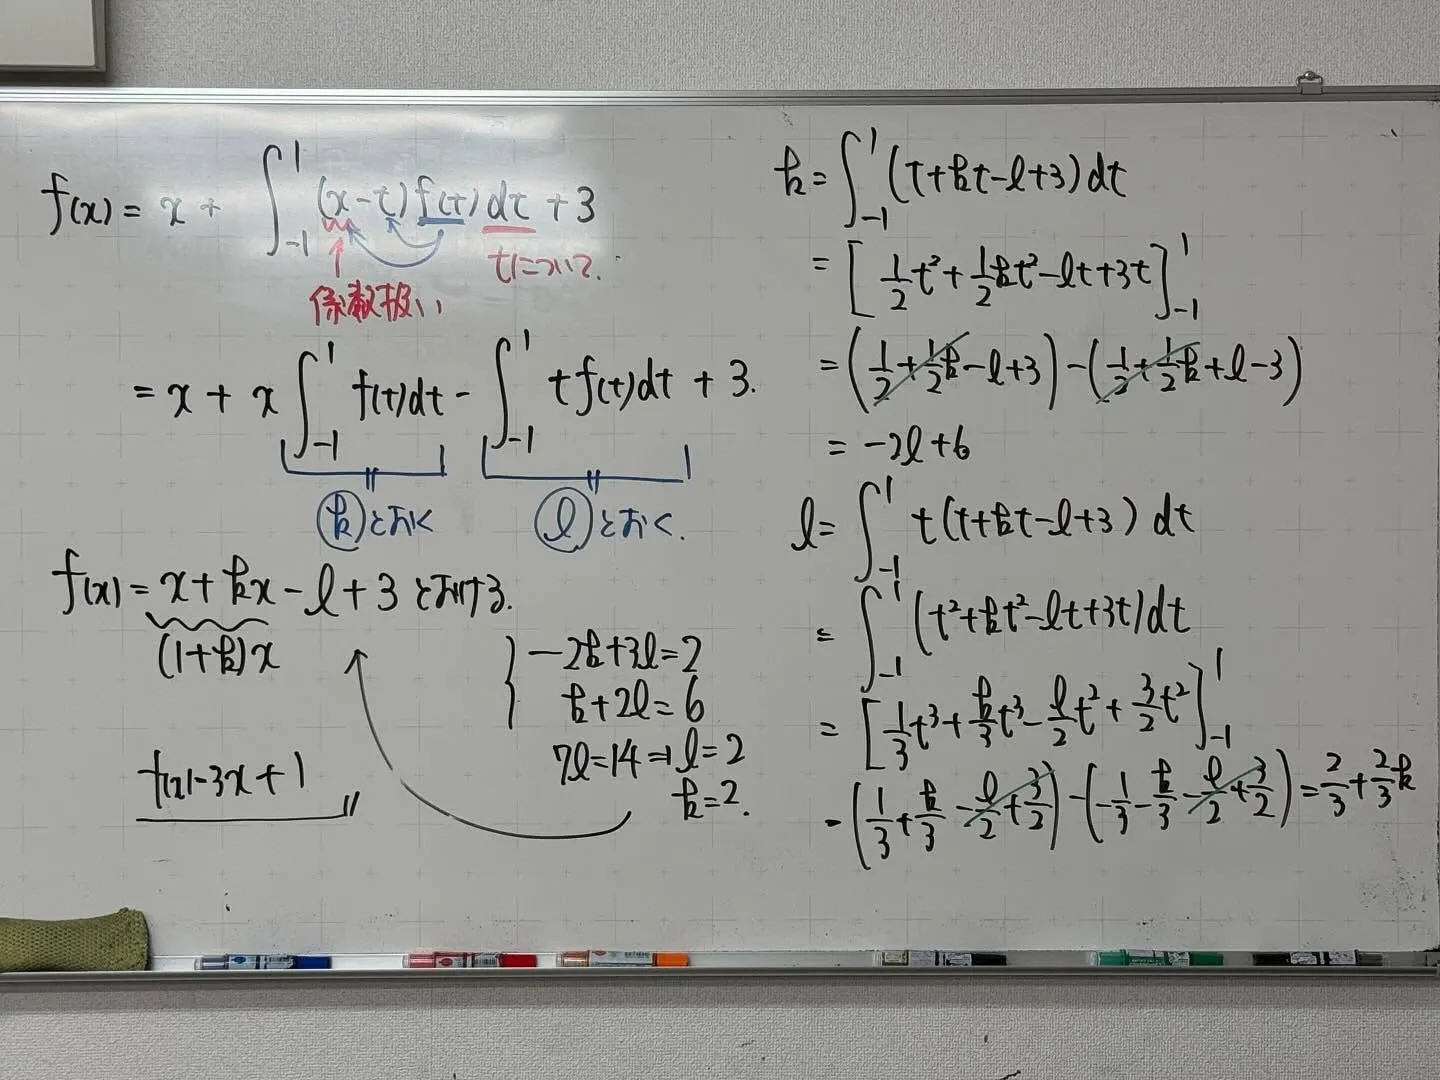 f(x) = x + ∫_{-1}^{1} (x-t) f(t) dt + 3
係数扱い
tについて.
= x + x ∫_{-1}^{1} f(t)dt - ∫_{-1}^{1} t f(t)dt + 3.
kとおく
lとおく.
f(x) = x + kx - l + 3 とおける.
(1+k)x
-2k+3l=2
k+2l=6
7l=14 ⇒ l=2
k=2.
f(x)=3x+1
k = ∫_{-1}^{1} (t+kt-l+3) dt
= [1/2 t² + 1/2 kt² - lt + 3t]_{-1}^{1}
= (1/2 + 1/2 k - l + 3) - (1/2 + 1/2 k + l - 3)
= -2l + 6
l = ∫_{-1}^{1} t(t+kt-l+3) dt
= ∫_{-1}^{1} (t²+kt²-lt+3t)dt
= [1/3 t³ + k/3 t³ - l/2 t² + 3/2 t²]_{-1}^{1}
= (1/3 + k/3 - l/2 + 3/2) - (-1/3 - k/3 - l/2 + 3/2) = 2/3 + 2/3 k